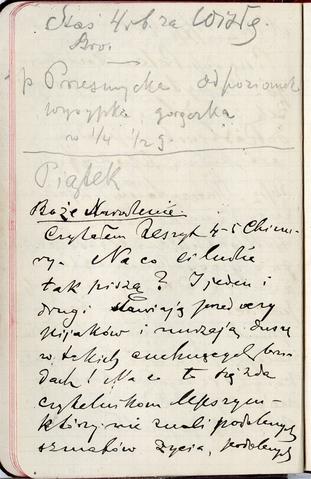 Staś 4 rb. za Wisłę.
Bro.
p Przesmycka od poziomek
wysypka, gorączka
w 1/4 1/2 g.
Piątek
Boże Narodzenie.
Czytałem Zeszyt 4-5 Chime-
ry. Na co ci ludzie
tak piszą? I jeden i
drugi stawiają przed oczy
pijaków i nurzają duszę
w takich cuchnących
dach! Na co to się zda
czytelnikom lepszym
którzy nie znali podobnych
szmatów życia, podobnych